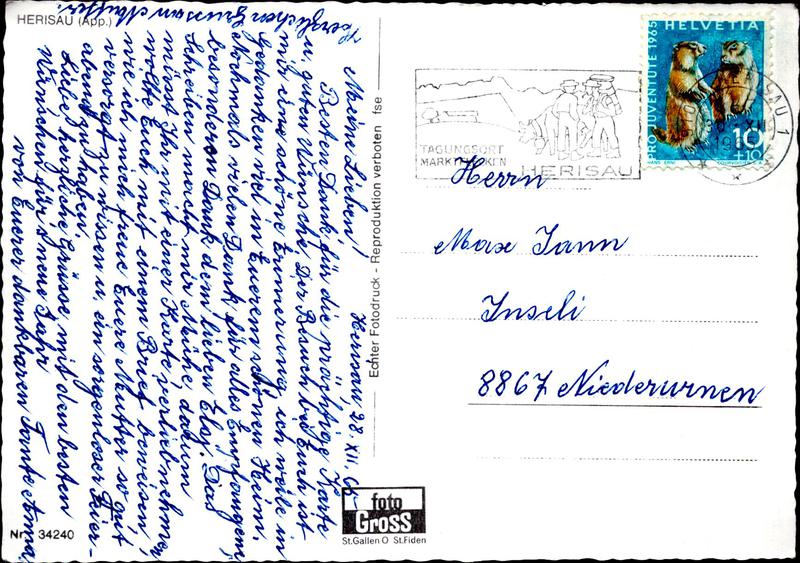 HERISAU (App.)
Herisau 28. XII. 65
Meine Lieben!
Besten Dank für die prächtige Karte
u. guten Wünsche. Der Besuch bei Euch ist
mir eine schöne Erinnerung, ich weile in
Gedanken viel in Euerem schönen Heim.
Nochmals vielen Dank für alles Empfangene,
besonders Dank dem lieben Eloj. Das
Schreiben macht mir Mühe, darum
müsst Ihr mit einer Karte vorlieb nehmen,
wollte Euch mit einem Brief beweisen,
wie ich mich freue Euere Mutter so gut
versorgt zu wissen u. ein sorgenloser Feier-
abend zu haben.
Liebe herzliche Grüsse mit den besten
Wünschen für's neue Jahr
von Euerer dankbaren Tante Anna
herzlichen Gruss an Mutter.
Nr. 34240
Echter Fotodruck - Reproduktion verboten fse
foto
GROSS
St.Gallen O St.Fiden
TAGUNGSORT
MARKTFLECKEN
HERISAU
HELVETIA
PRO JUVENTUTE 1965
10
+10
HERISAU 1
Herrn
Max Jann
Inseli
8867 Niederurnen